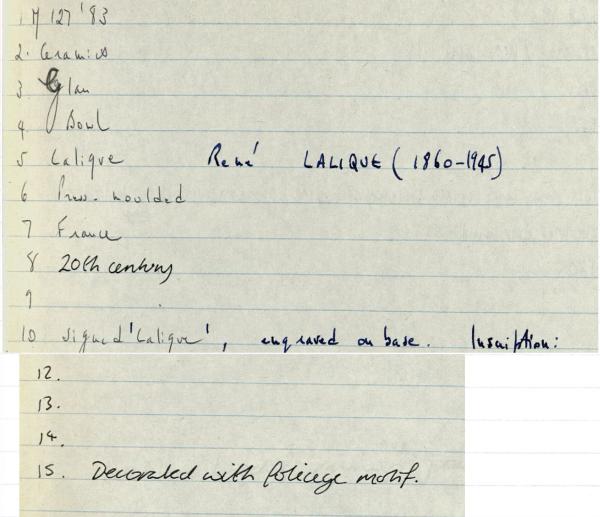 1 M 127 '83
2. Ceramics
3 Glass
4 Bowl
5 Lalique René LALIQUE (1860-1945)
6 Press-moulded
7 France
8 20th century
9
10 signed 'Lalique', engraved on base. Inscription:
12.
13.
14.
15. Decorated with foliage motif.